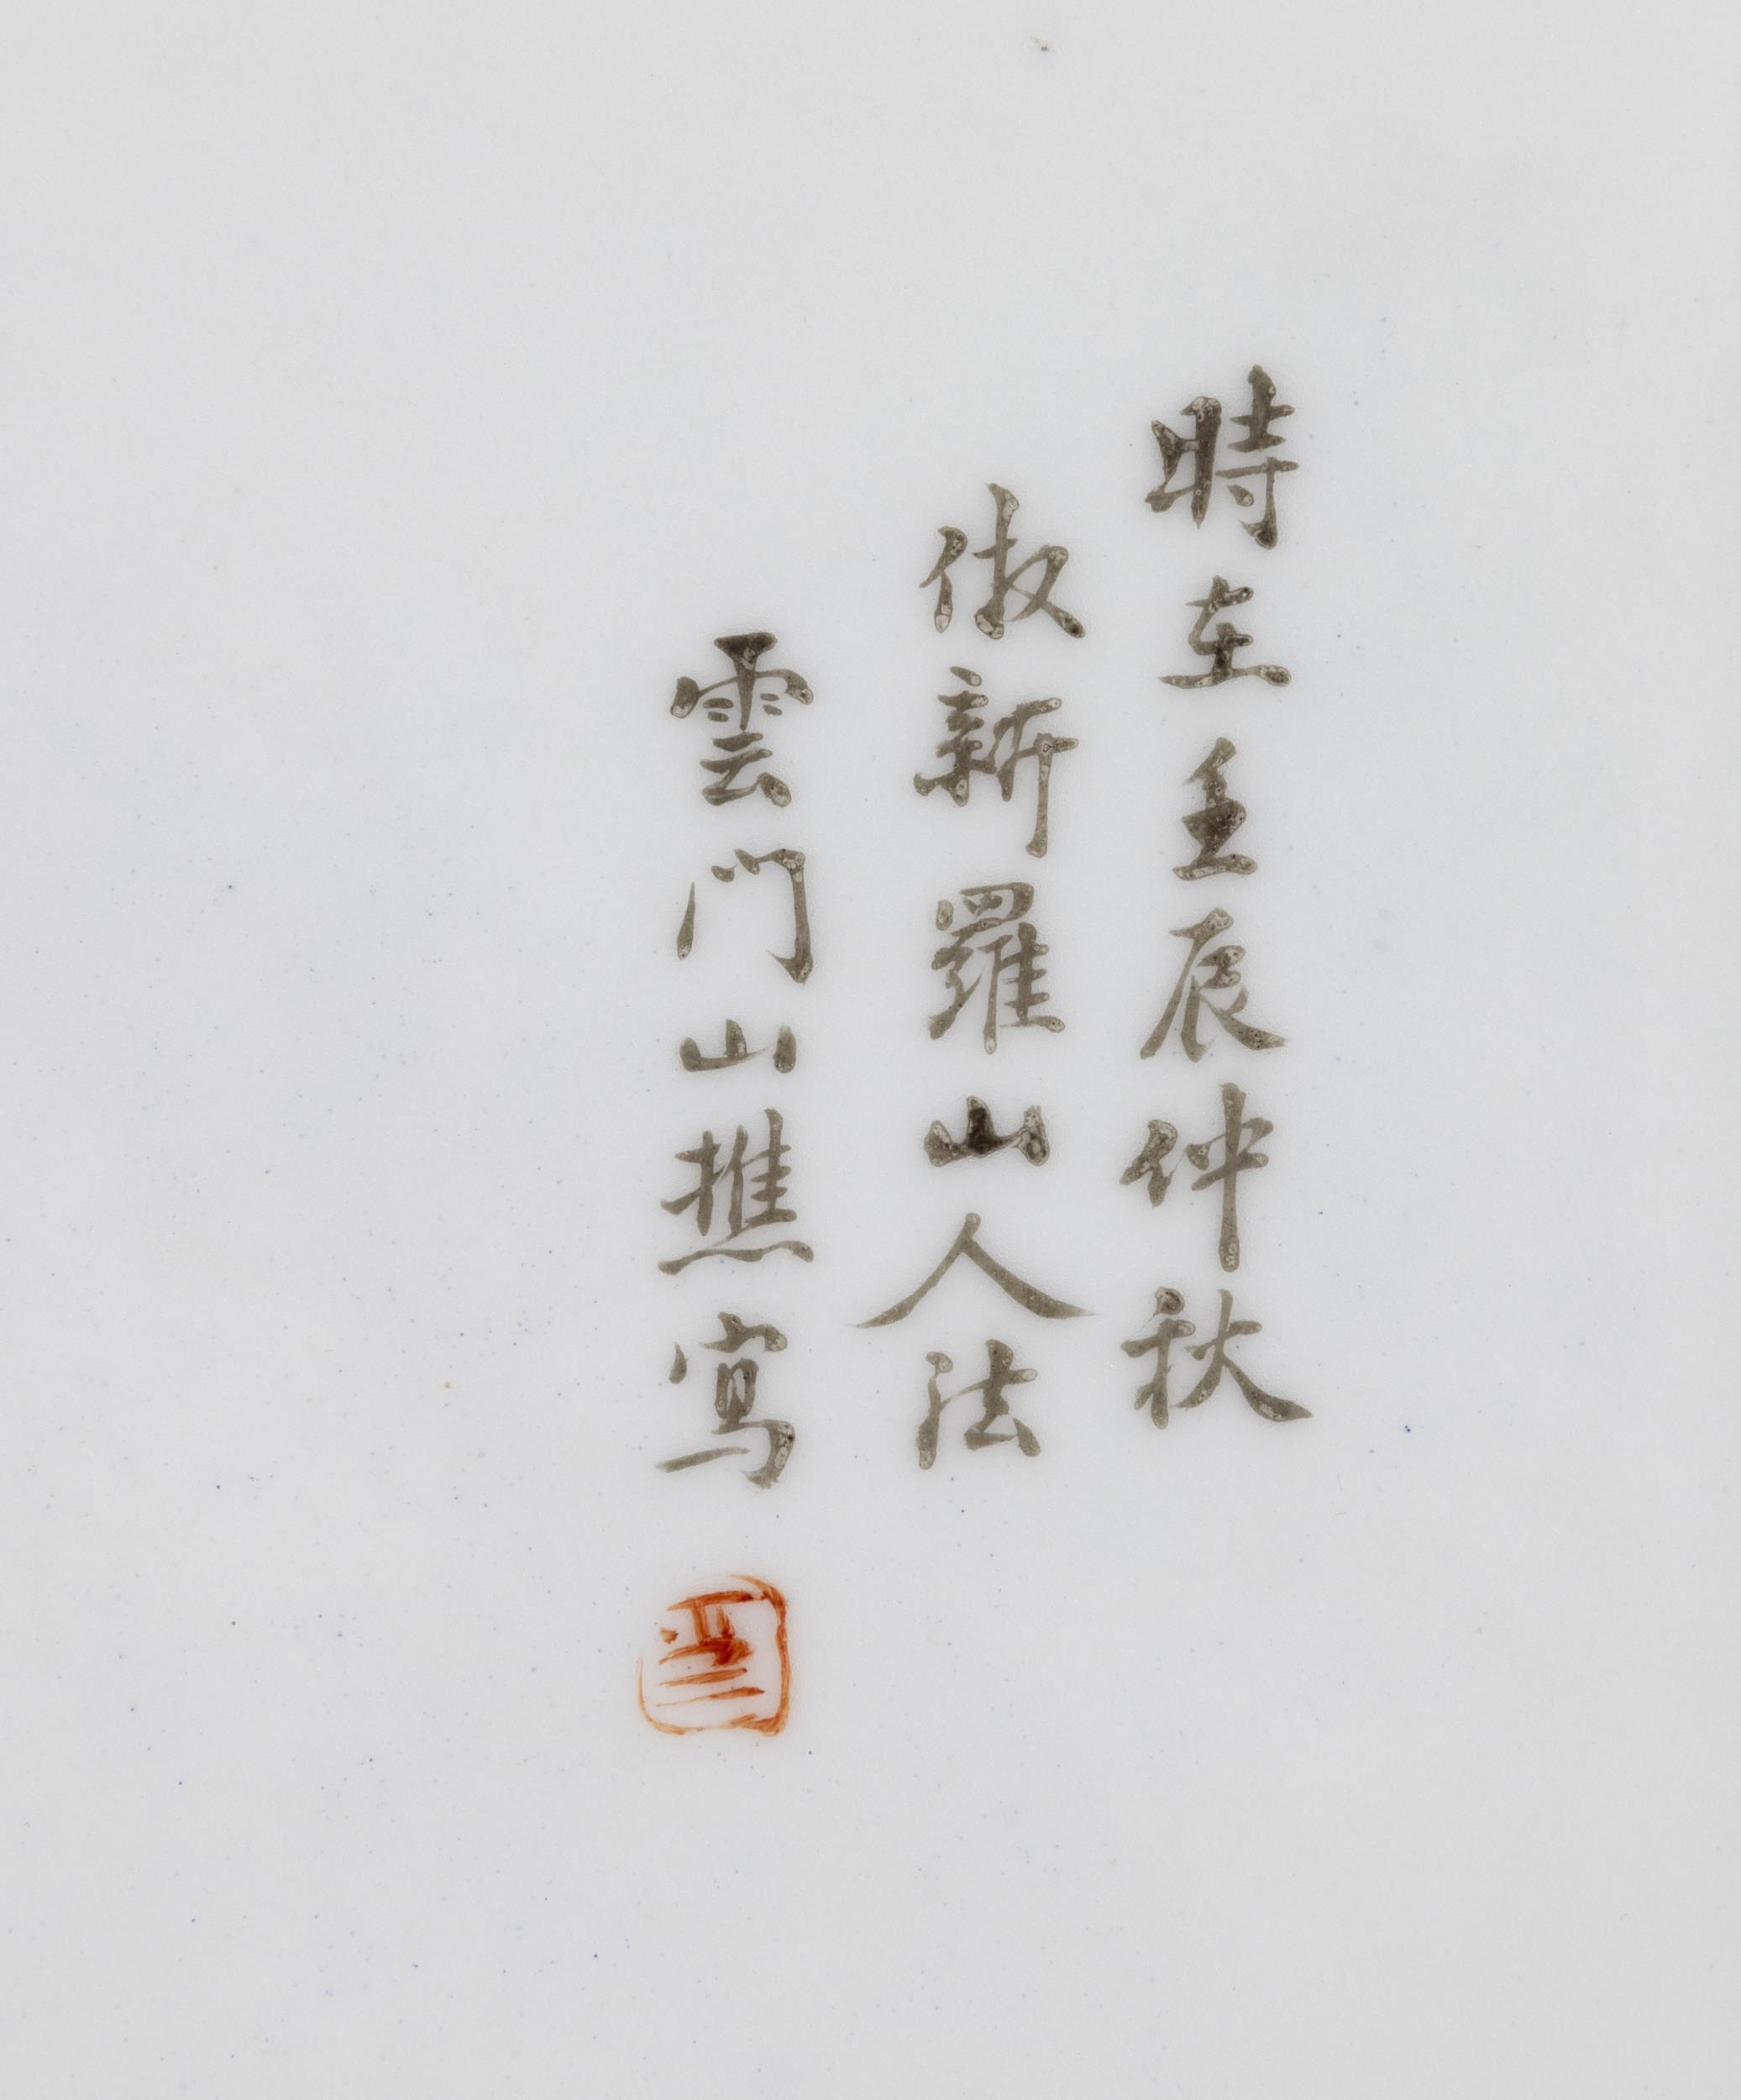 時在壬辰仲秋
倣新羅山人法
雲門山樵寫